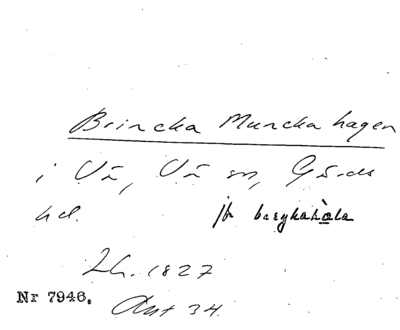 Brincka Muncka hagen
i Vä, Vä sn, Gärds
hd. jfr bergkahåla
Lh. 1827
Nr 7946. Ant 34.